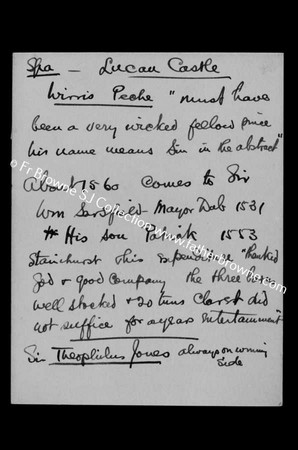 Spa — Lucan Castle
Wirris Peche "must have
been a very wicked fellow since
his name means Sin in the abstract"
About 1560 comes to Sir
Wm Sarsfield Mayor Dub 1531
His son Patrick 1553
Stanihurst his expenditure "thanked
God & good Company the three
well stocked & 20 tuns Claret did
not suffice for a years entertainment"
Sir Theophilus Jones always on winning
side
© Fr Browne SJ Collection www.fatherbrowne.com